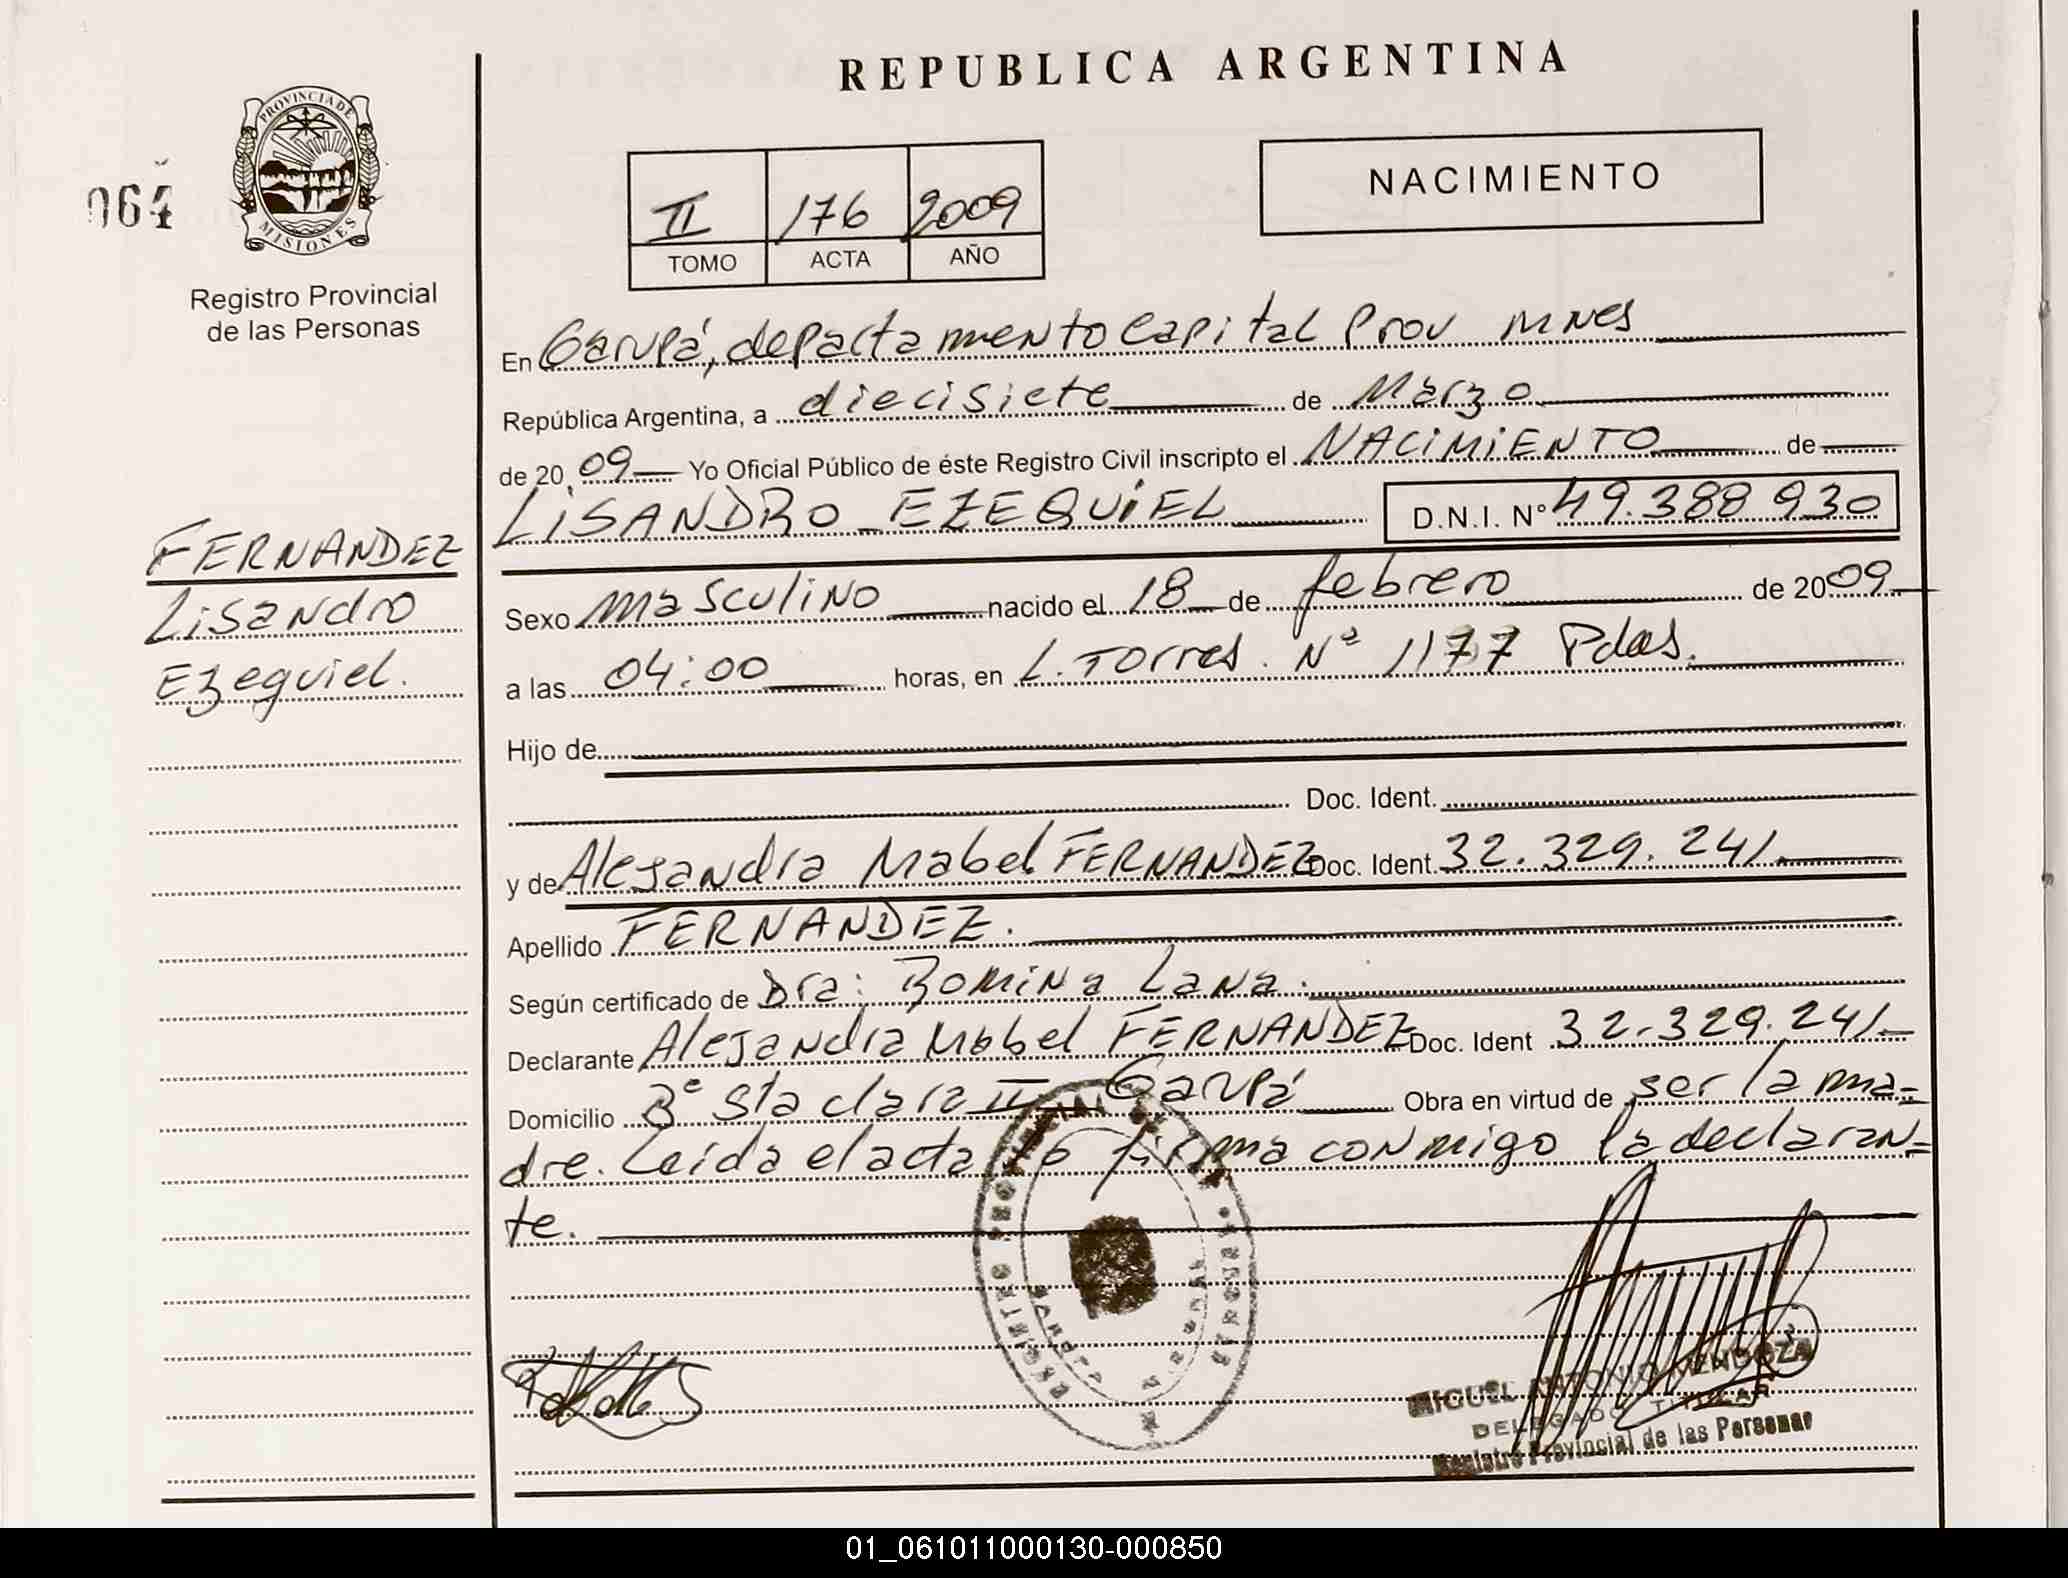 REPUBLICA ARGENTINA
PROVINCIA DE
MISIONES
064
Registro Provincial
de las Personas
II 176 2009
TOMO ACTA AÑO
NACIMIENTO
En Garupá, departamento Capital Prov Mnes
República Argentina, a diecisiete de Marzo
de 2009 Yo Oficial Público de éste Registro Civil inscripto el NACIMIENTO de
LISANDRO EZEQUIEL D.N.I. Nº 49.388 930
FERNANDEZ
Lisandro
Ezequiel.
Sexo Masculino nacido el 18 de febrero de 2009
a las 04:00 horas, en L. Torres. Nº 1177 Pdas.
Hijo de
Doc. Ident.
y de Alejandra Mabel FERNANDEZ Doc. Ident. 32.329.241
Apellido FERNANDEZ.
Según certificado de Dra: Romina Lana.
Declarante Alejandra Mabel FERNANDEZ Doc. Ident 32.329.241
Domicilio Bº Sta Clara II Garupá Obra en virtud de ser la ma=
dre. Leida el acta la firma conmigo la declaran=
te.
MIGUEL ANTONIO MENDOZA
DELEGADO TITULAR
Registro Provincial de las Personas
01_061011000130-000850